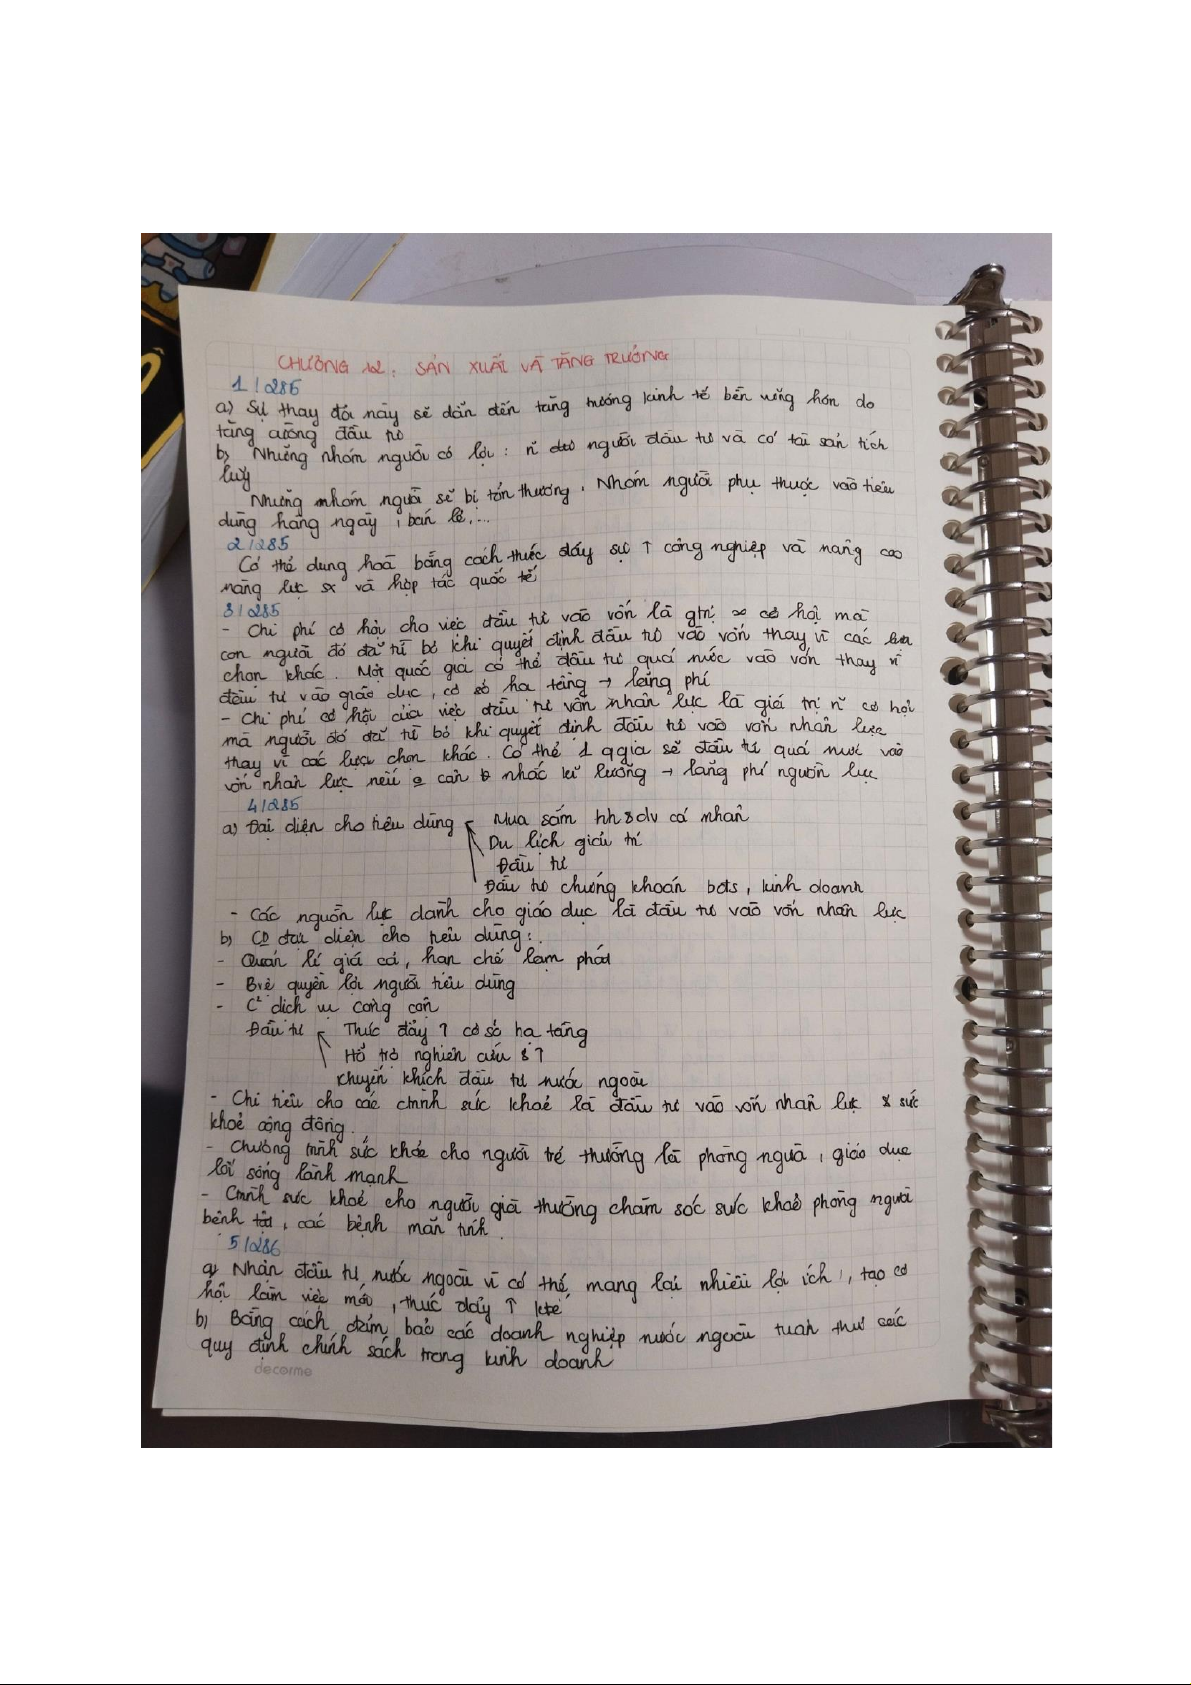 CHƯƠNG 12: SẢN XUẤT VÀ TĂNG TRƯỞNG
1/285
a) Sự thay đổi này sẽ dẫn đến tăng trưởng kinh tế bền vững hơn do
tăng cường đầu tư
b) Những nhóm người có lợi: n người đầu tư và có tài sản tích
luỹ
Những nhóm người sẽ bị tổn thương: Nhóm người phụ thuộc vào tiêu
dùng hàng ngày, bán lẻ,...
2/285
Có thể dung hoà bằng cách thúc đẩy sự ↑ công nghiệp và nâng cao
năng lực sx và hợp tác quốc tế
3/285
- Chi phí cơ hội cho việc đầu tư vào vốn là gtrị cơ hội mà
con người đó đã từ bỏ khi quyết định đầu tư vào vốn thay vì các lựa
chọn khác. Một quốc gia có thể đầu tư quá mức vào vốn thay vì
đầu tư vào giáo dục, cơ sở hạ tầng → lãng phí
- Chi phí cơ hội của việc đầu tư vốn nhân lực là giá trị n cơ hội
mà người đó đã từ bỏ khi quyết định đầu tư vào vốn nhân lực
thay vì các lựa chọn khác. Có thể 1 qgia sẽ đầu tư quá mức vào
vốn nhân lực nếu cân nhắc kĩ lưỡng → lãng phí nguồn lực
4/285
a) Đại diện cho tiêu dùng Mua sắm hh & dv cá nhân
Du lịch giải trí
Đầu tư
Đầu tư chứng khoán bđts, kinh doanh
- Các nguồn lực dành cho giáo dục là đầu tư vào vốn nhân lực
b) CP đại diện cho tiêu dùng:
- Quản lí giá cả, hạn chế lạm phát
- Bvệ quyền lợi người tiêu dùng
- C² dịch vụ công cộn
Đầu tư Thúc đẩy ↑ cơ sở hạ tầng
Hỗ trợ nghiên cứu & ↑
Khuyến khích đầu tư nước ngoài
- Chi tiêu cho các ctrình sức khoẻ là đầu tư vào vốn nhân lực & sức
khoẻ cộng đồng.
- Chương trình sức khỏe cho người trẻ thường là phòng ngừa, giáo dục
lối sống lành mạnh
- Ctrình sức khoẻ cho người già thường chăm sóc sức khoẻ phòng ngừa
bệnh tật, các bệnh mãn tính.
5/286
a) Nhận đầu tư nước ngoài vì có thể mang lại nhiều lợi ích, tạo cơ
hội làm việc mới, thúc đẩy ↑ ktế
b) Bằng cách đảm bảo các doanh nghiệp nước ngoài tuân thủ các
quy định chính sách trong kinh doanh
decorme